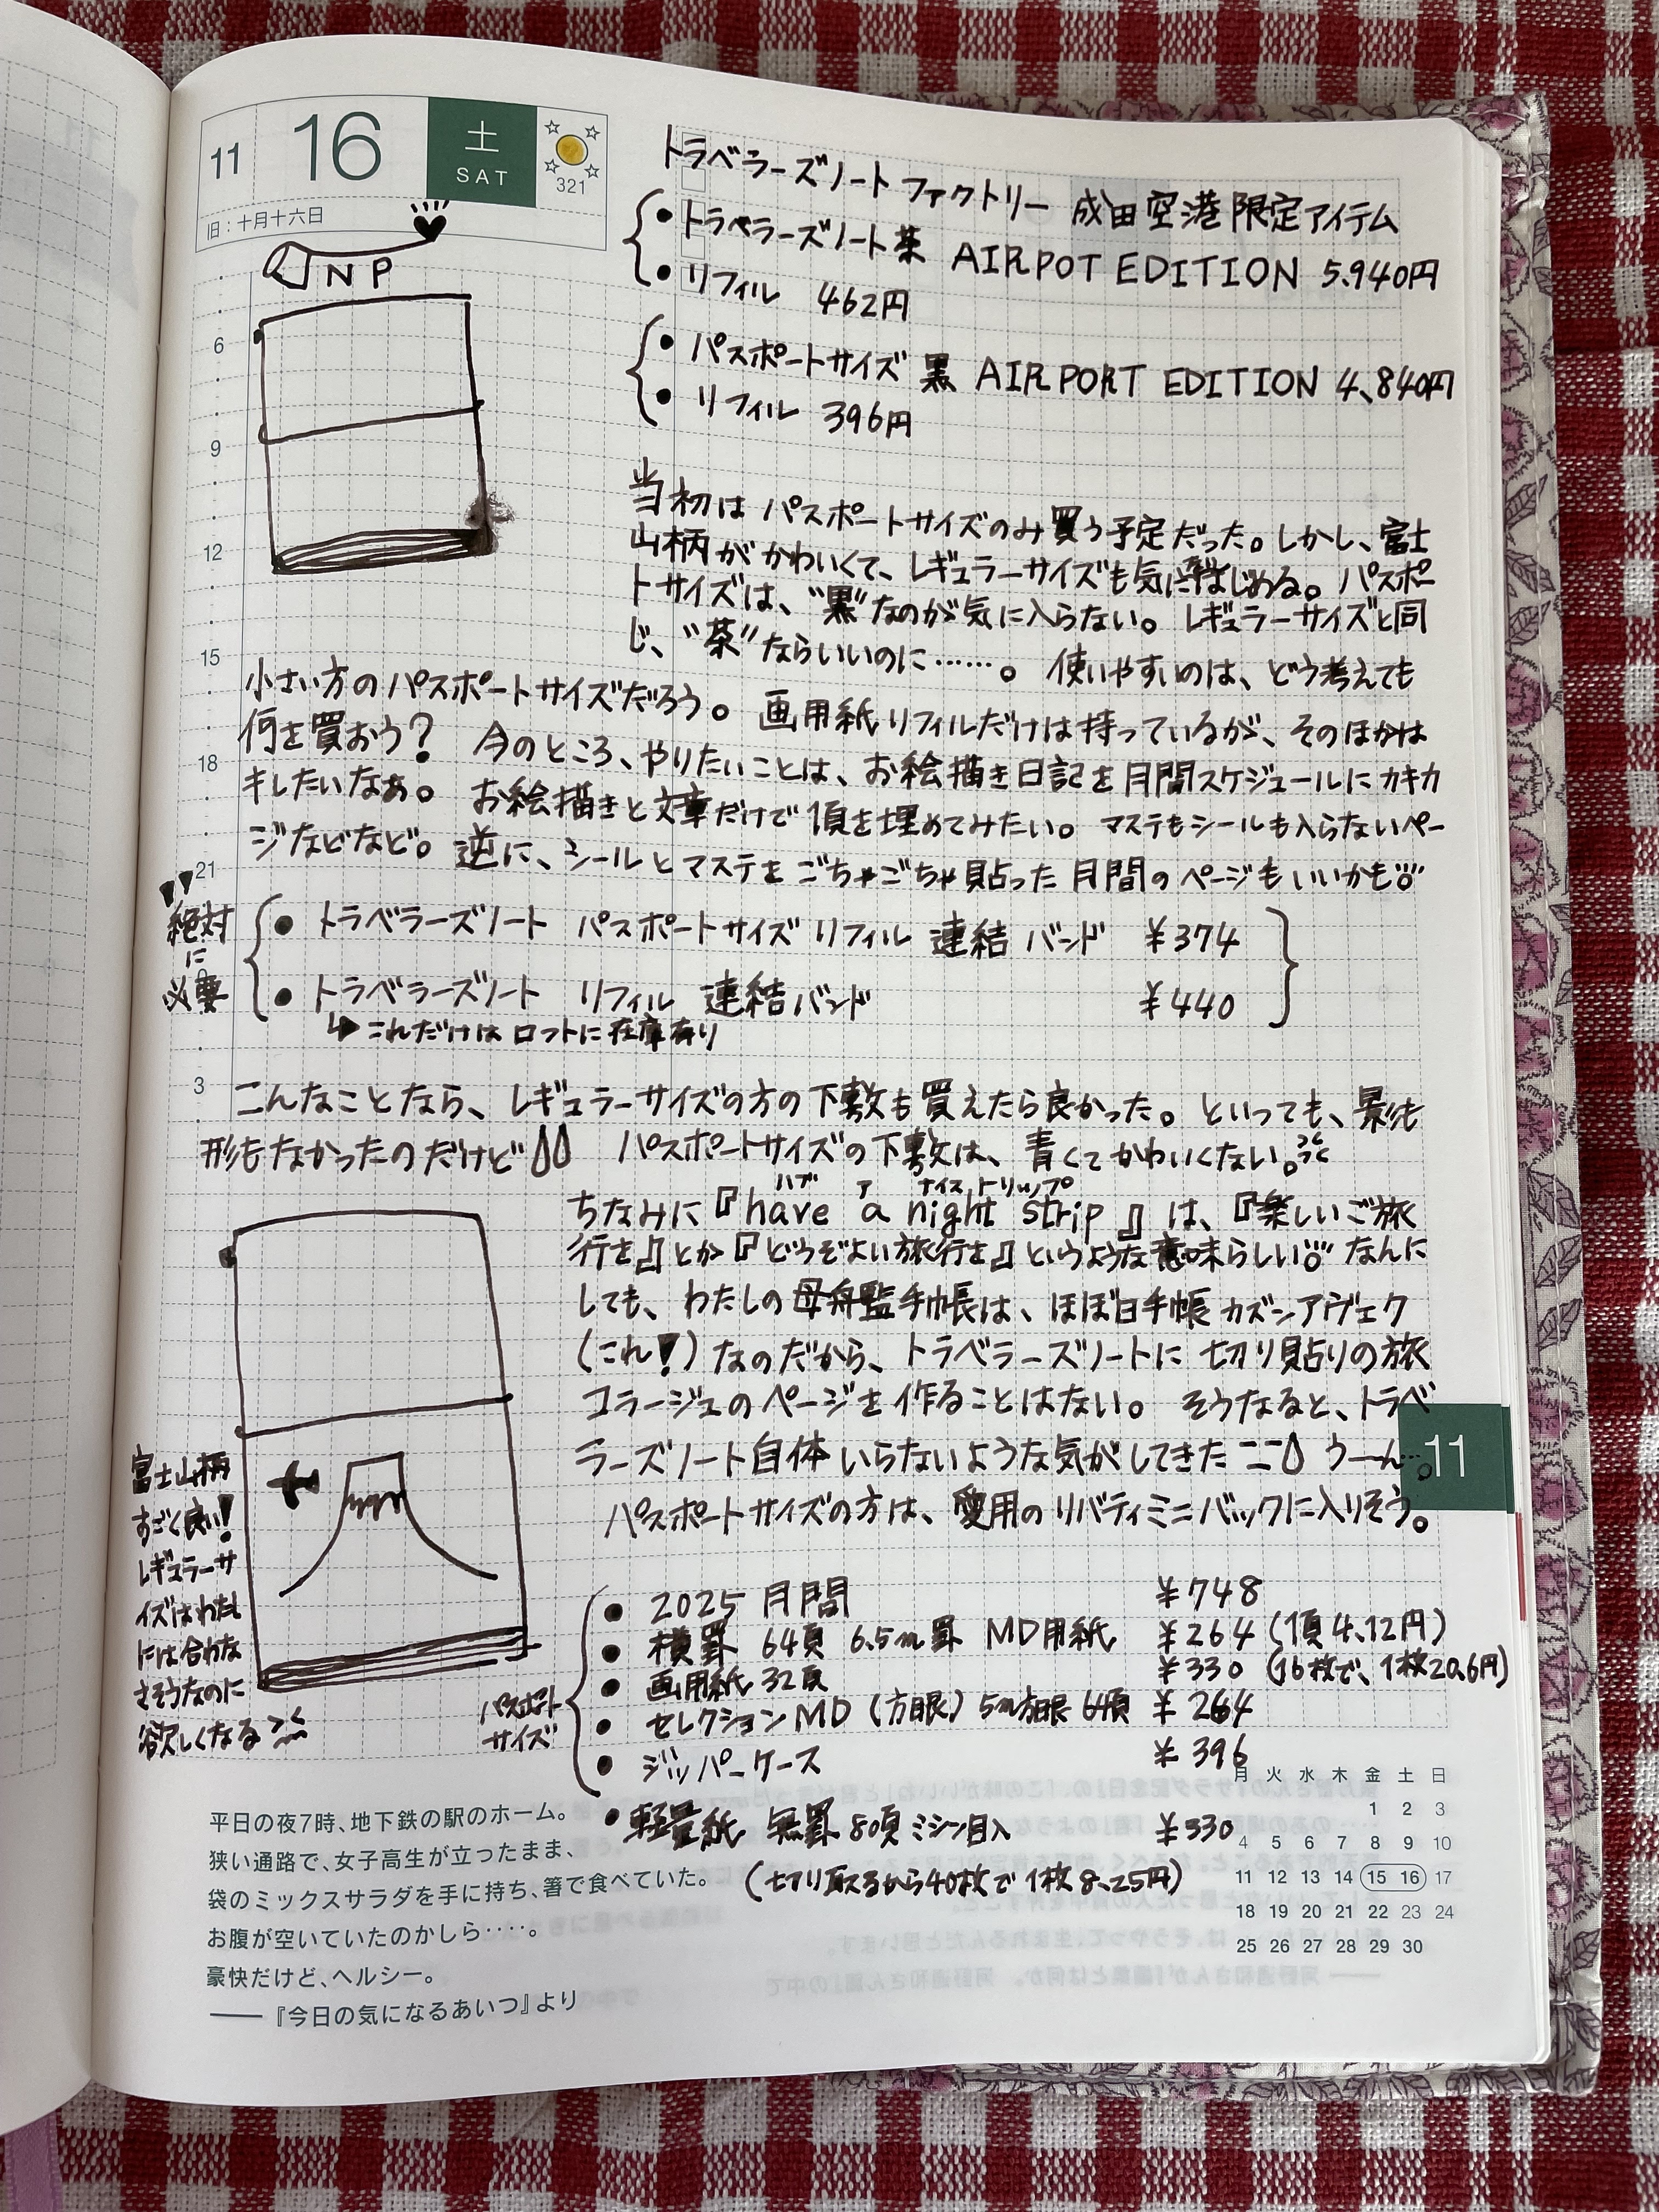 11 16 土 SAT 321
旧：十月十六日
NP
トラベラーズノート ファクトリー 成田空港 限定アイテム
• トラベラーズノート 茶 AIRPOT EDITION 5.940円
• リフィル 462円
• パスポートサイズ 黒 AIRPORT EDITION 4,840円
• リフィル 396円
当初は パスポートサイズのみ 買う予定だった。しかし、富士
山柄が かわいくて、レギュラーサイズも気に はじめる。 パスポー
トサイズは、"黒"なのが気に入らない。 レギュラーサイズと同
じ、"茶"ならいいのに……。 使いやすいのは、どう考えても
小さい方の パスポートサイズだろう。 画用紙リフィルだけは持っているが、そのほかは
何を買おう？ 今のところ、やりたいことは、お絵描き日記を月間スケジュールに カキカ
キしたいなぁ。 お絵描きと文章だけで 頂を埋めてみたい。 マステもシールも入らないペー
ジなどなど。 逆に、シールとマステを ごちゃごちゃ貼った 月間の ページもいいかも
絶対
に
必要
• トラベラーズノート パスポートサイズ リフィル 連結 バンド ￥374
• トラベラーズノート リフィル 連結バンド ￥440
↳ これだけは ロフトに在庫有り
こんなことなら、 レギュラーサイズの方の下敷も買えたら良かった。 といっても、影も
形もなかったのだけど パスポートサイズの下敷は、青くてかわいくない。
ハブ ア ナイス トリップ
ちなみに『have a night strip』は、『楽しいご旅
行を』とか『どうぞよい旅行を』というような意味らしい なんに
しても、 わたしの 母舟監手帳は、ほぼ日手帳 カズンアヴェク
(これ!) なのだから、トラベラーズノートに 切り貼りの旅
コラージュのページを作ることはない。 そうなると、トラベ
ラーズノート自体 いらないような気がしてきた うーん…。
パスポートサイズの方は、愛用の リバティミニバックに入りそう。
富士山柄
すごく良い!
レギュラーサ
イズはわたし
には合わな
さそうなのに
欲しくなる
パスポート
サイズ
• 2025 月間 ￥748
• 横罫 64頁 6.5㎜罫 MD用紙 ￥264 (1頂 4.12円)
• 画用紙 32頁 ￥330 (16枚で、1枚20.6円)
• セレクションMD (方眼) 5㎜方眼 64頂 ￥264
• ジッパーケース ￥396
• 軽量紙 無罫 80頂 ミシン目入 ￥330
(切り取るから40枚で 1枚 8.25円)
6
9
12
15
18
21
3
11
平日の夜7時、地下鉄の駅のホーム。
狭い通路で、女子高生が立ったまま、
袋のミックスサラダを手に持ち、箸で食べていた。
お腹が空いていたのかしら‥‥。
豪快だけど、ヘルシー。
──『今日の気になるあいつ』より
月 火 水 木 金 土 日
1 2 3
4 5 6 7 8 9 10
11 12 13 14 15 16 17
18 19 20 21 22 23 24
25 26 27 28 29 30